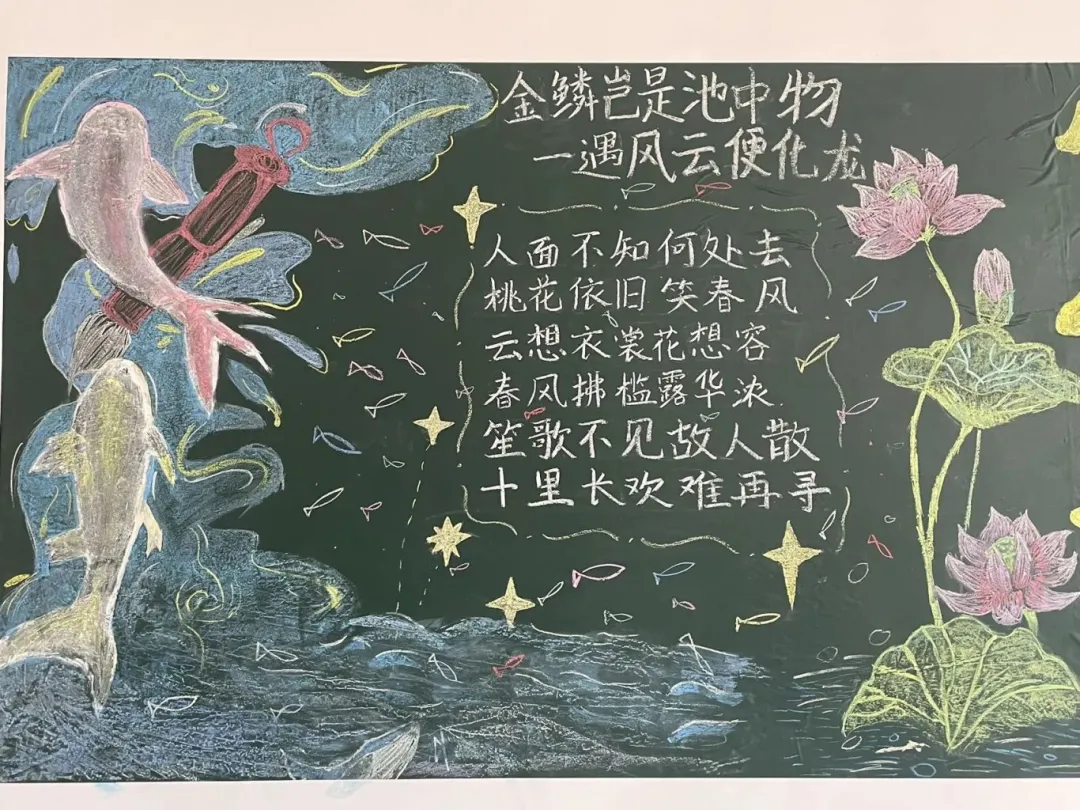 金鳞岂是池中物
一遇风云便化龙
人面不知何处去
桃花依旧笑春风
云想衣裳花想容
春风拂槛露华浓
笙歌不见故人散
十里长欢难再寻